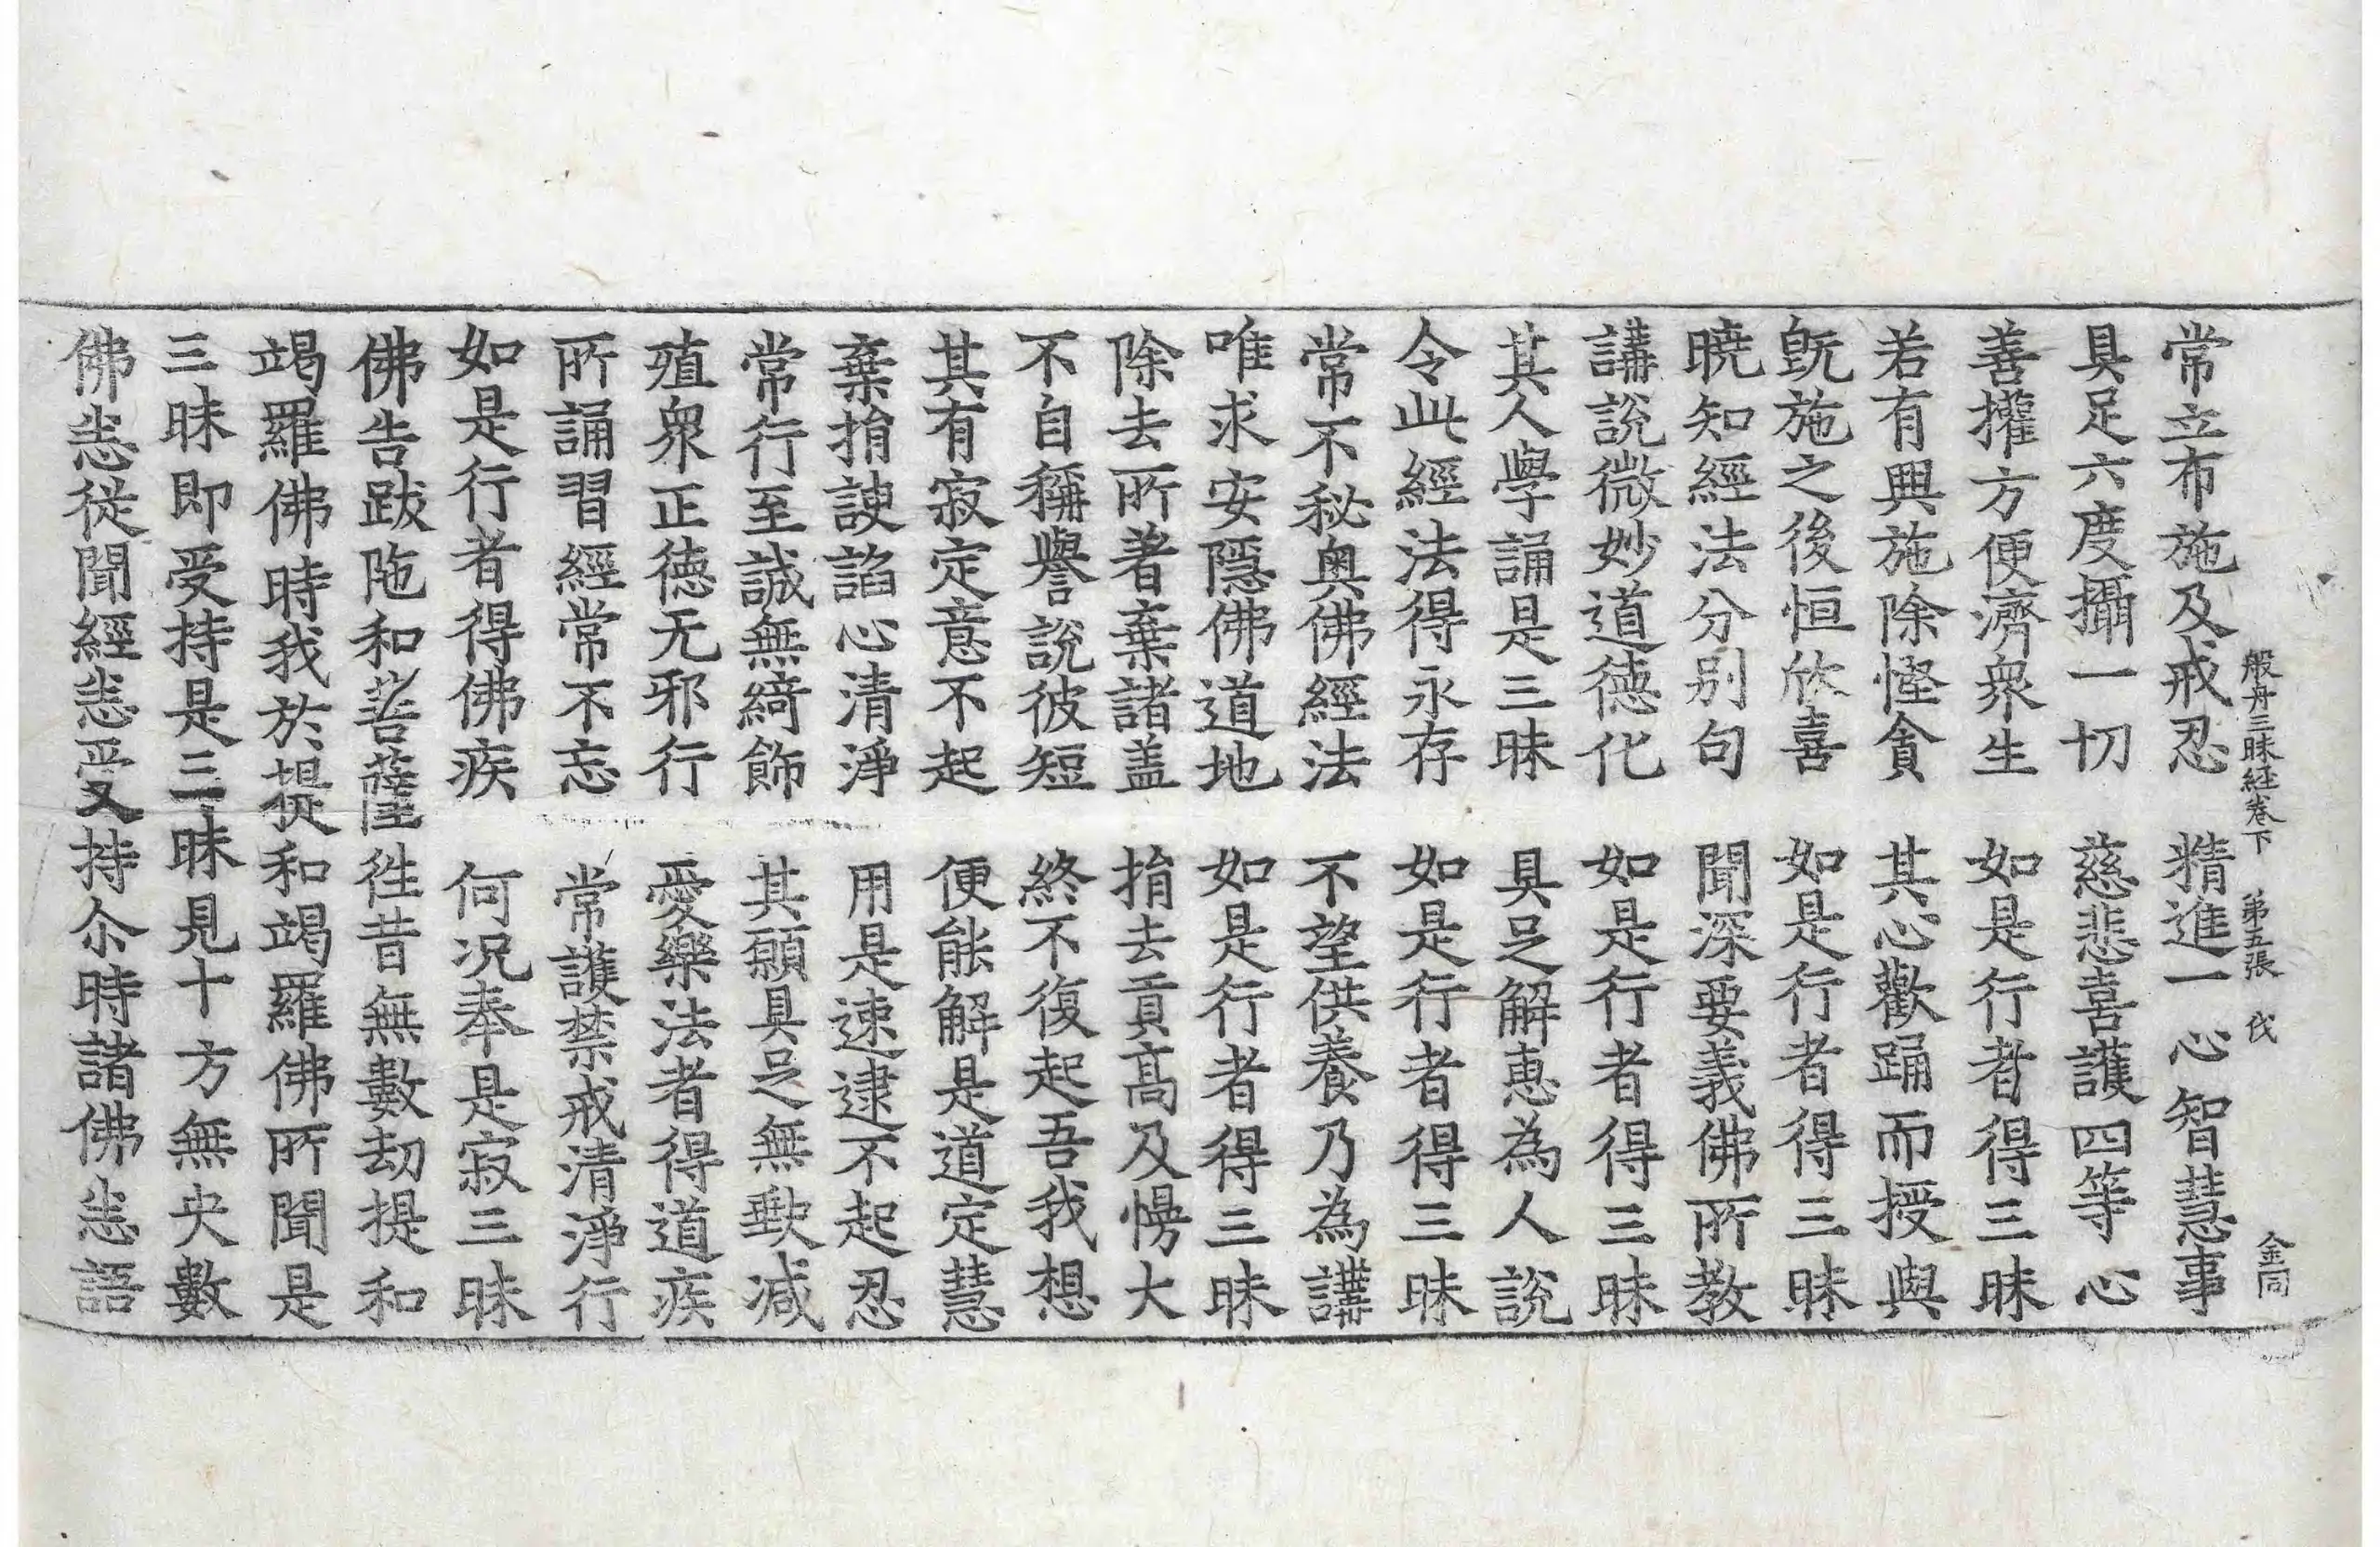 般舟三昧経卷下　第五張　伐　金同
常立布施及戒忍　精進一心智慧事
具足六度攝一切　慈悲喜護四等心
善權方便濟衆生　如是行者得三昧
若有興施除慳貪　其心歡踊而授與
旣施之後恒欣喜　如是行者得三昧
曉知經法分別句　聞深要義佛所教
講說微妙道德化　如是行者得三昧
其人學誦是三昧　具足解惠為人說
令此經法得永存　如是行者得三昧
常不秘奧佛經法　不望供養乃為講
唯求安隱佛道地　如是行者得三昧
除去所著棄諸盖　捐去貢高及慢大
不自稱譽說彼短　終不復起吾我想
其有寂定意不起　便能解是道定慧
棄捐諛諂心清淨　用是速逮不起忍
常行至誠無綺飾　其願具足無歜减
殖衆正德无邪行　愛樂法者得道疾
所誦習經常不忘　常護禁戒清淨行
如是行者得佛疾　何況奉是寂三昧
佛告跋陁和菩薩徃昔無數劫提和
竭羅佛時我於提和竭羅佛所聞是
三昧即受持是三昧見十方無央數
佛悉從聞經悉受持尒時諸佛悉語